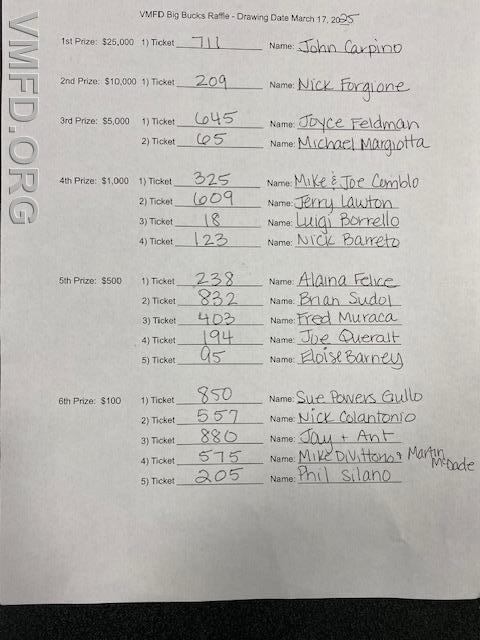 VMFD Big Bucks Raffle - Drawing Date March 17, 2025
1st Prize: $25,000 1) Ticket 711 Name: John Carpino
2nd Prize: $10,000 1) Ticket 209 Name: Nick Forgione
3rd Prize: $5,000 1) Ticket 645 Name: Joyce Feldman
2) Ticket 65 Name: Michael Margiotta
4th Prize: $1,000 1) Ticket 325 Name: Mike & Joe Comblo
2) Ticket 609 Name: Jerry Lawton
3) Ticket 18 Name: Luigi Borrello
4) Ticket 123 Name: Nick Barreto
5th Prize: $500 1) Ticket 238 Name: Alaina Felice
2) Ticket 832 Name: Brian Sudol
3) Ticket 403 Name: Fred Muraca
4) Ticket 194 Name: Joe Queralt
5) Ticket 95 Name: Eloise Barney
6th Prize: $100 1) Ticket 850 Name: Sue Powers Gullo
2) Ticket 557 Name: Nick Colantonio
3) Ticket 880 Name: Jay + Ant
4) Ticket 575 Name: Mike DiVittorio & Martin McDade
5) Ticket 205 Name: Phil Silano
VMFD.ORG